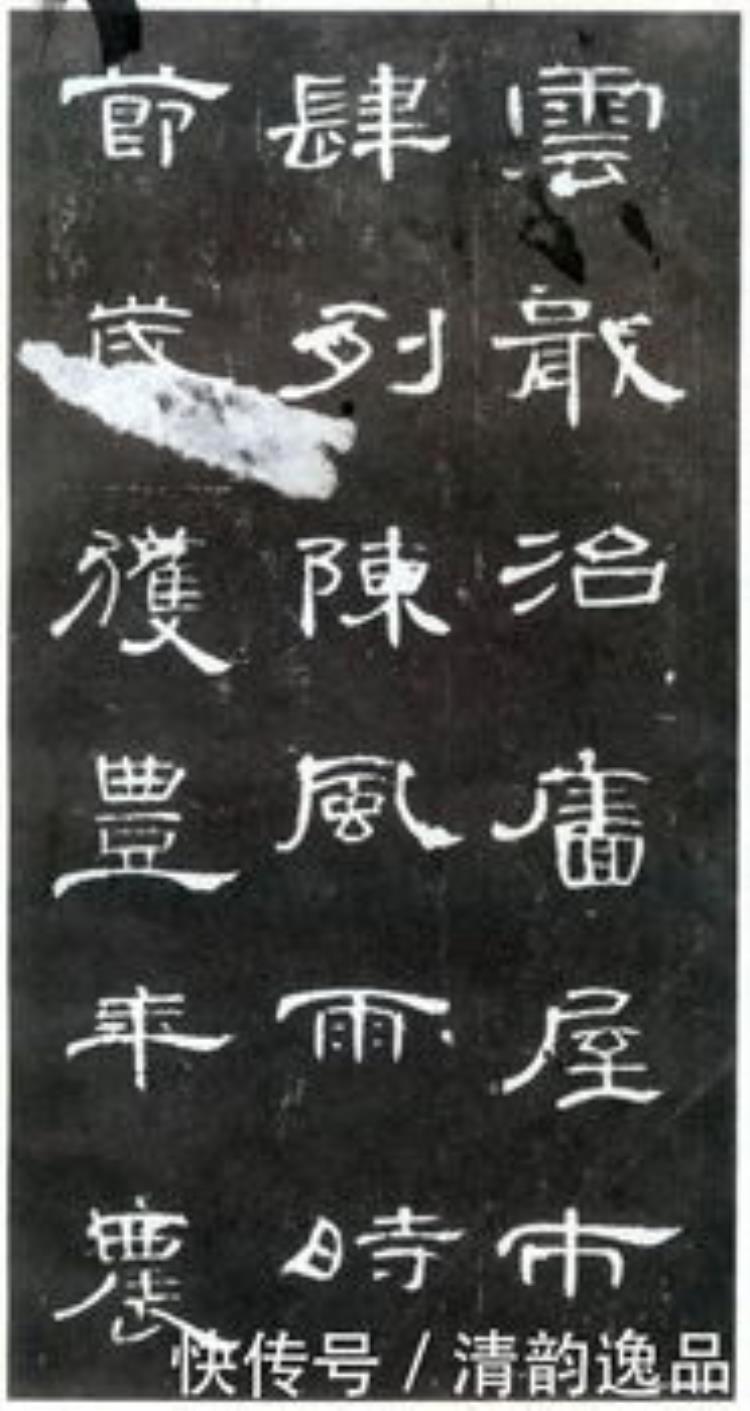 雲散治廧屋市
肆列陳風雨時
節歲獲豊年農
快传号 / 清韵逸品